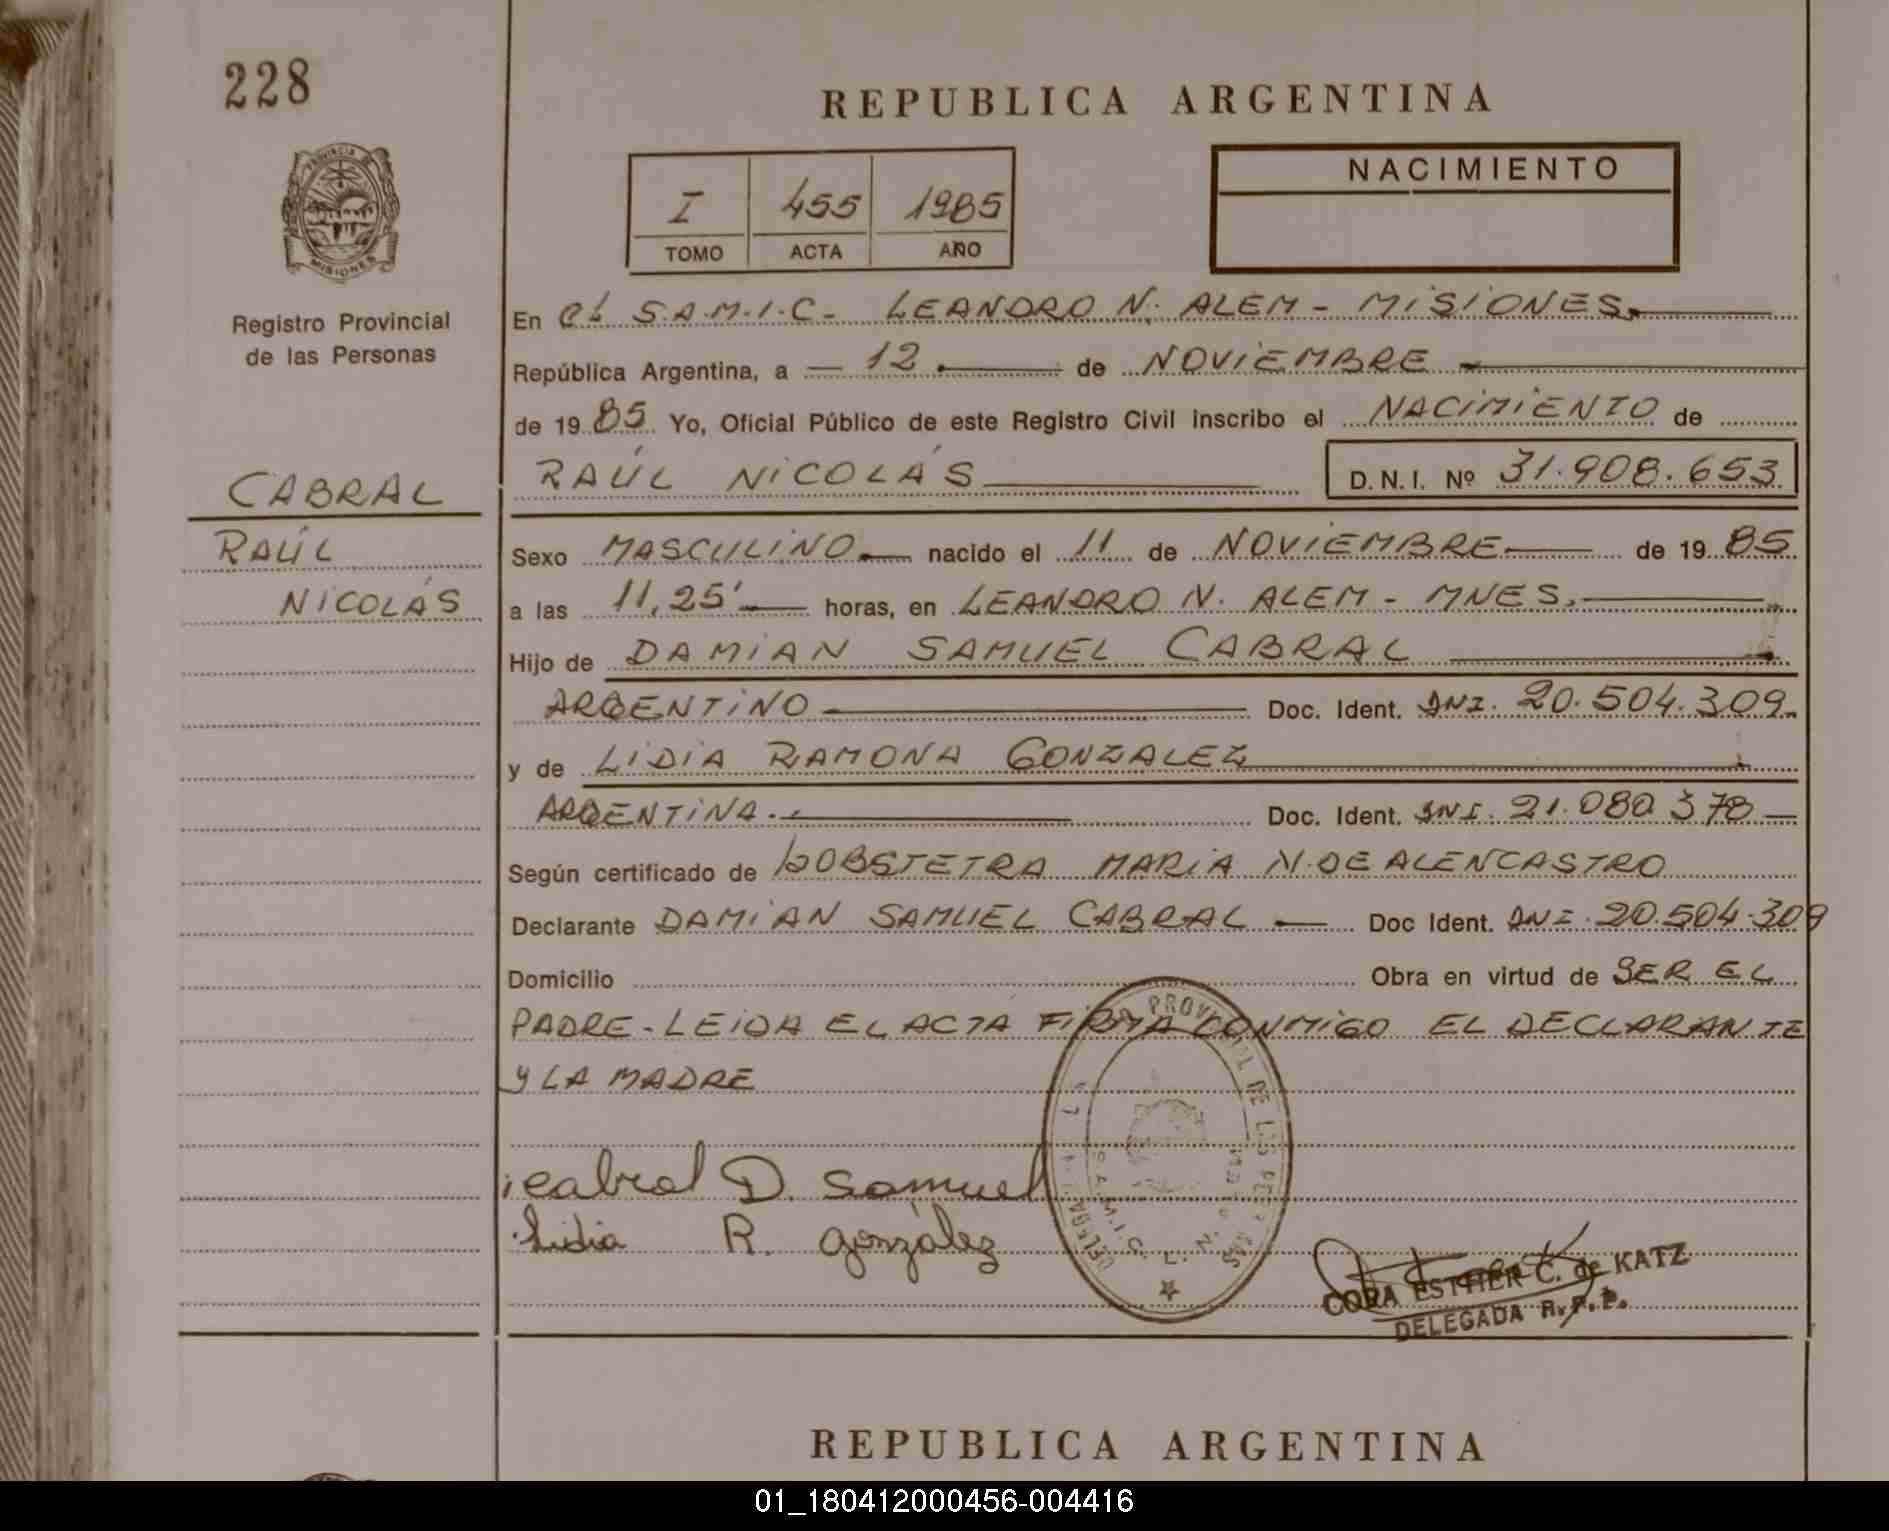 228
REPUBLICA ARGENTINA
PROVINCIA DE
MISIONES
Registro Provincial
de las Personas
I 455 1985
TOMO ACTA AÑO
NACIMIENTO
En el S.A.M.I.C- LEANDRO N. ALEM - MISIONES.
República Argentina, a 12 de NOVIEMBRE
de 1985 Yo, Oficial Público de este Registro Civil inscribo el NACIMIENTO de
RAÚL NICOLÁS D.N.I. Nº 31.908.653
CABRAL
RAÚL
NICOLÁS
Sexo MASCULINO nacido el 11 de NOVIEMBRE de 1985
a las 11,25' horas, en LEANDRO N. ALEM - MNES.
Hijo de DAMIAN SAMUEL CABRAL
ARGENTINO Doc. Ident. DNI. 20.504.309
y de LIDIA RAMONA GONZALEZ
ARGENTINA. Doc. Ident. DNI. 21.080.378
Según certificado de OBSTETRA MARIA N. DE ALENCASTRO
Declarante DAMIAN SAMUEL CABRAL Doc Ident. DNI. 20.504.309
Domicilio Obra en virtud de SER EL
PADRE - LEIDA EL ACTA FIRMA CONMIGO EL DECLARANTE
Y LA MADRE
Cabral D. Samuel
Lidia R. González
CORA ESTHER C. de KATZ
DELEGADA R.P.P.
REPUBLICA ARGENTINA
01_180412000456-004416